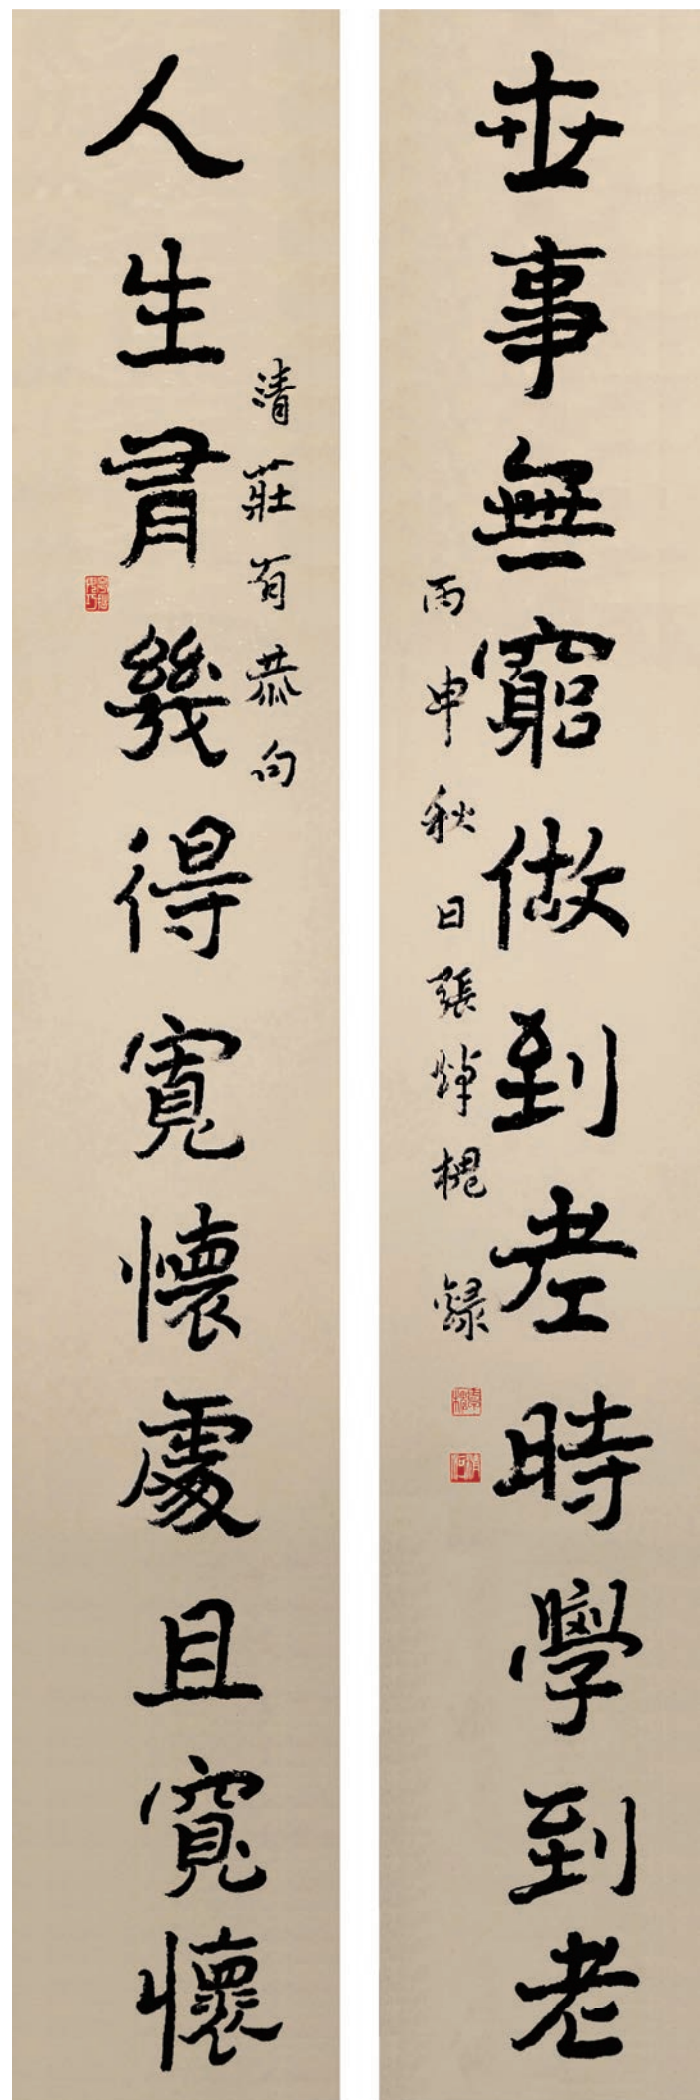 世事無窮做到老時學到老
丙申秋日張焯槐錄
人生有幾得寬懷處且寬懷
清莊有恭句